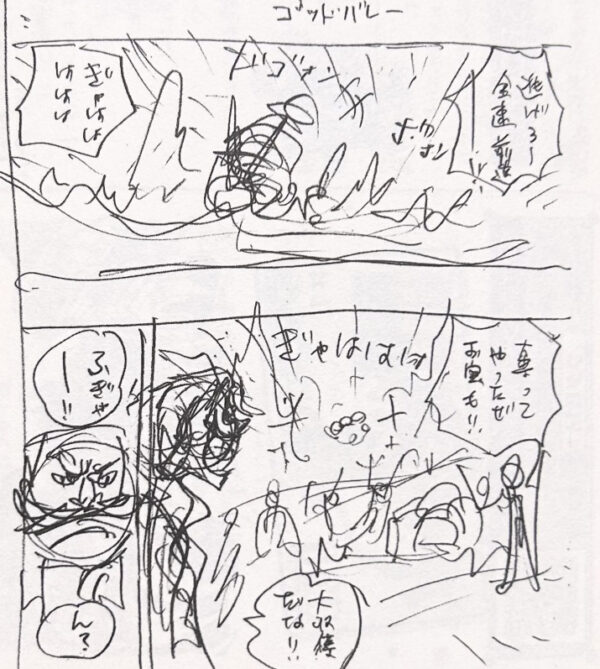 ゴッドバレー
逃げろー
全速前進!!
ドゴォン
ぎゃはは
ははは
奪って
やったぜ
お宝も!!
ぎゃはははは
大収穫
だな!!
ふぎゃ
ー!!
ん?